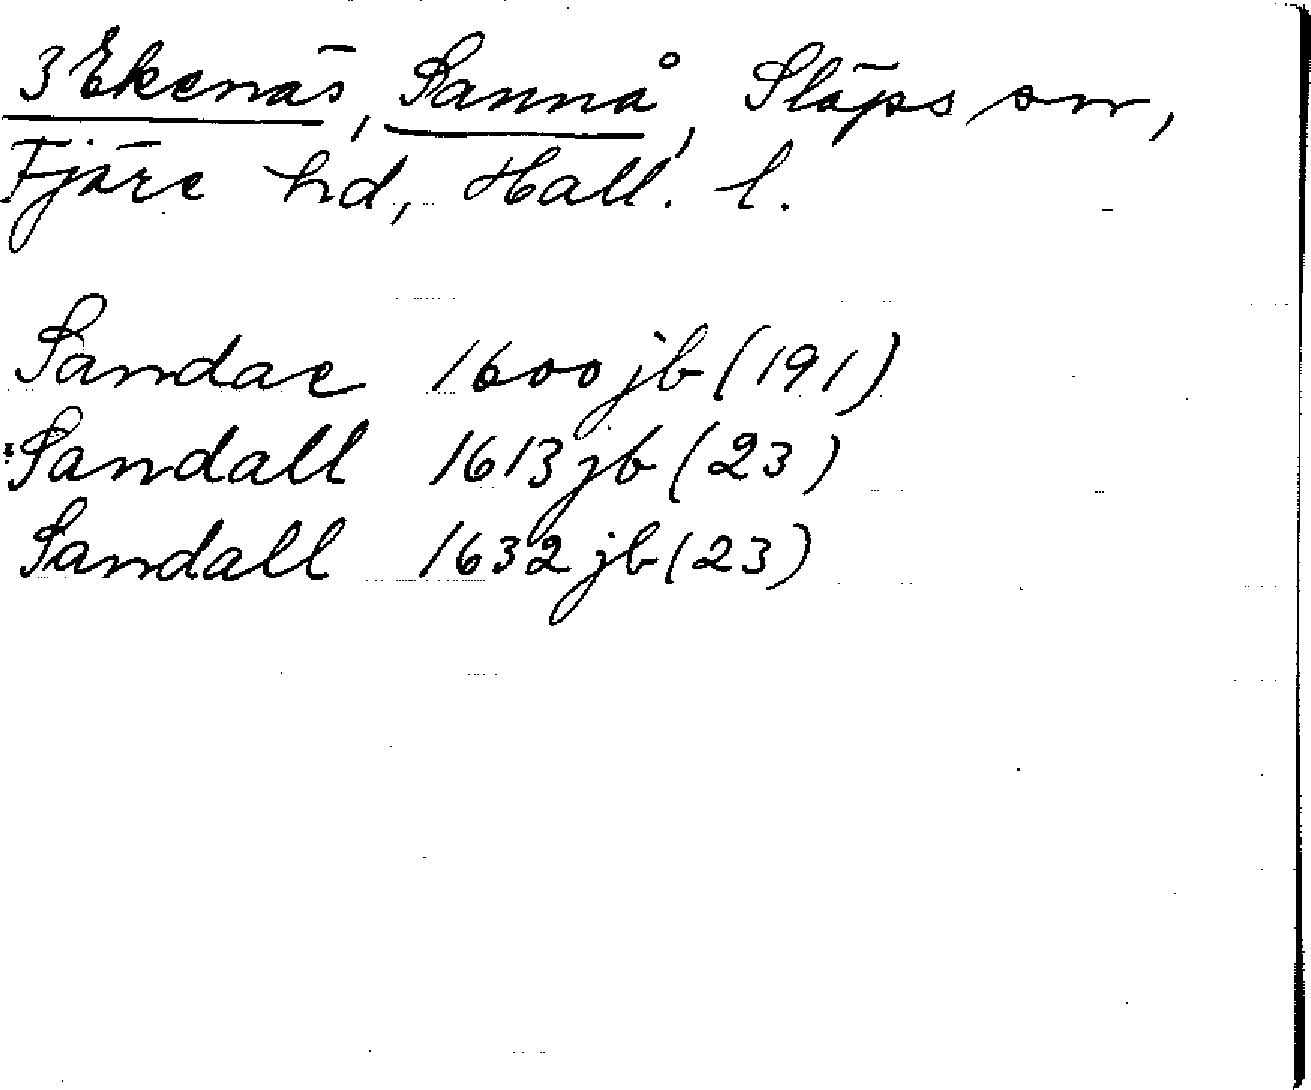 3 Ekenäs, Sannå, Släps sn,
Fjäre hd, Hall. l.
Sandae 1600 jb (191)
Sandall 1613 jb (23)
Sandall 1632 jb (23)